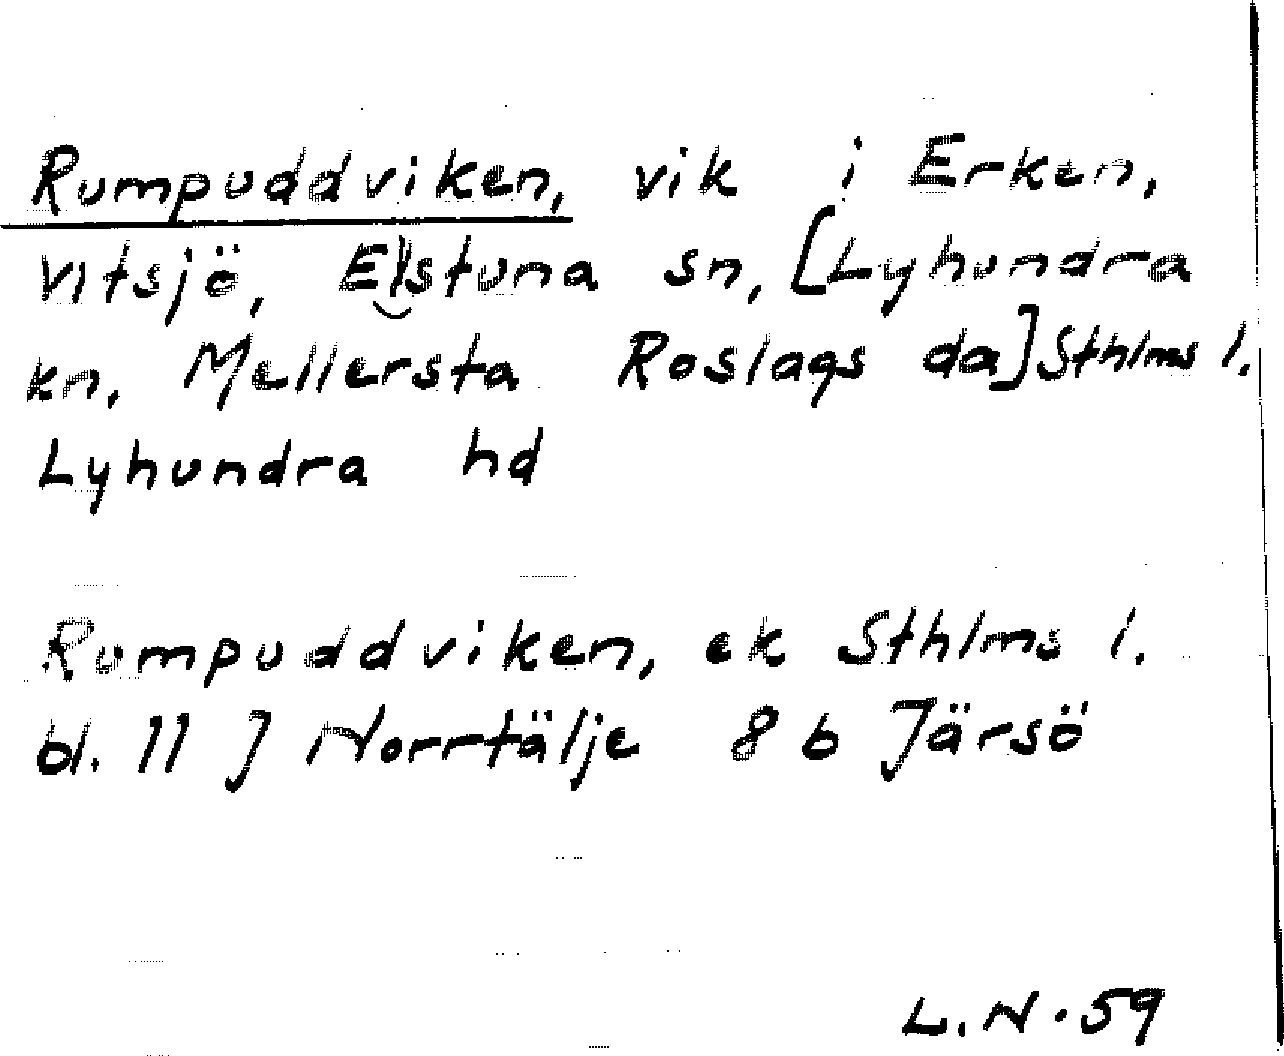 Rumpuddviken, vik i Erken,
Vitsjö, Estuna sn, [Lyhundra
kn, Mellersta Roslags da] Sthlms l.
Lyhundra hd
Rumpuddviken, ek Sthlms l.
bl. 11 J Norrtälje 8 b Järsö
L. N. 59